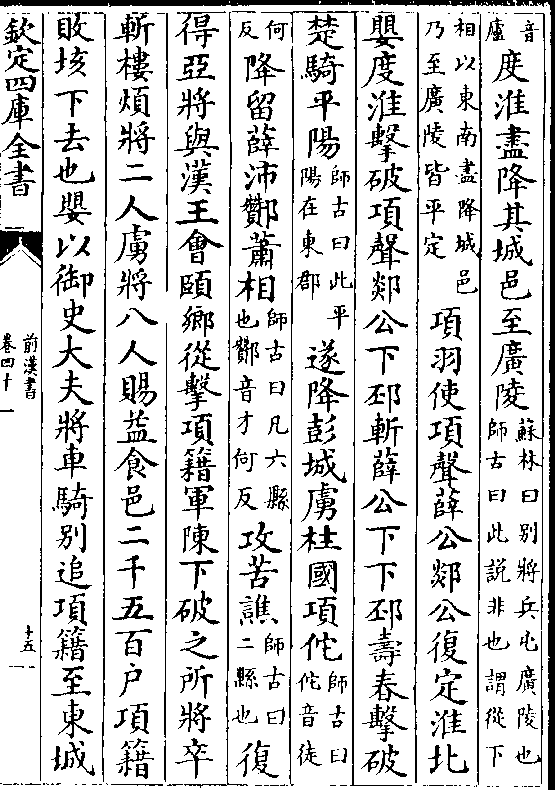 音廬度淮盡降其城邑至廣陵蘇林曰别將兵屯廣陵也師古曰此説非也謂從下
相以東南盡降城邑乃至廣陵皆平定項羽使項聲薛公郯公復定淮北
嬰度淮擊破項聲郯公下邳斬薛公下下邳壽春擊破
楚騎平陽師古曰此平陽在東郡遂降彭城虜柱國項佗師古曰佗音徒
何反降留薛沛酇蕭相師古曰凡六縣也酇音才何反攻苦譙師古曰二縣也復
得亞將與漢王會頤鄉從擊項籍軍陳下破之所將卒
斬樓煩將二人虜將八人賜益食邑二千五百户項籍
敗垓下去也嬰以御史大夫將車騎别追項籍至東城
欽定四庫全書
前漢書
卷四十一
十五